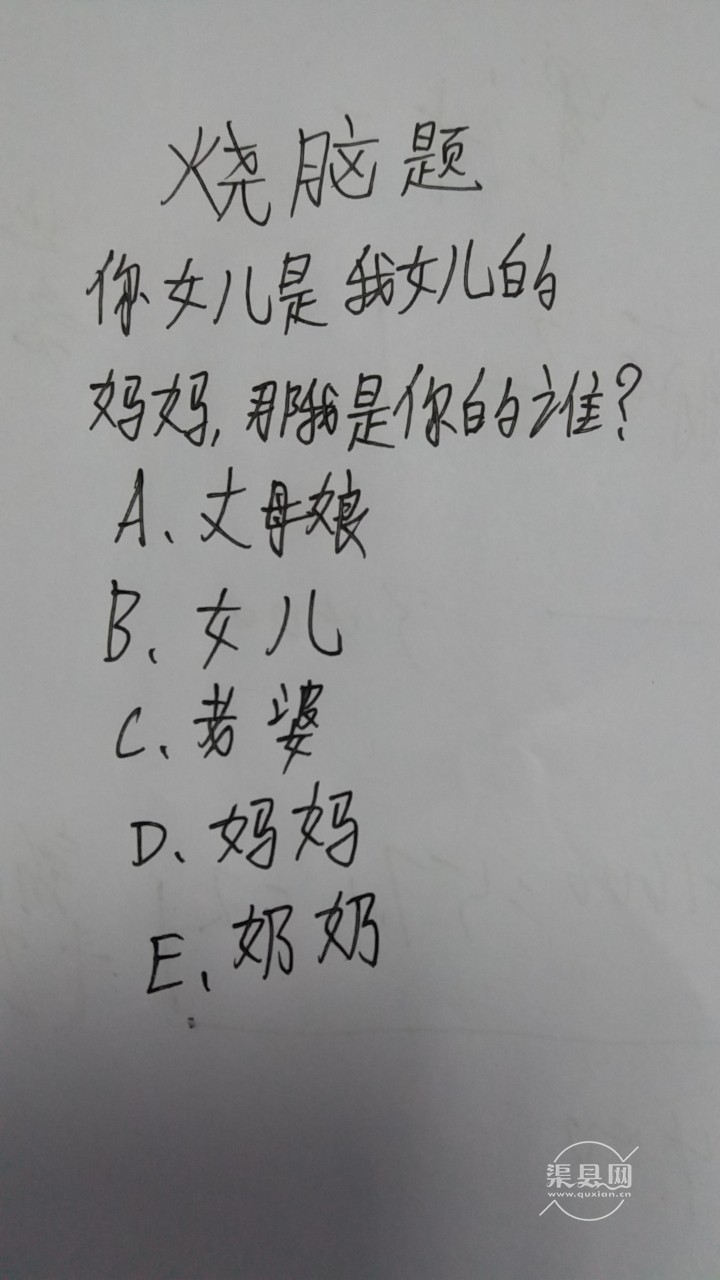 烧脑题
你女儿是我女儿的
妈妈,那我是你的谁?
A、丈母娘
B、女儿
C、老婆
D、妈妈
E、奶奶
渠县网
www.quxian.cn